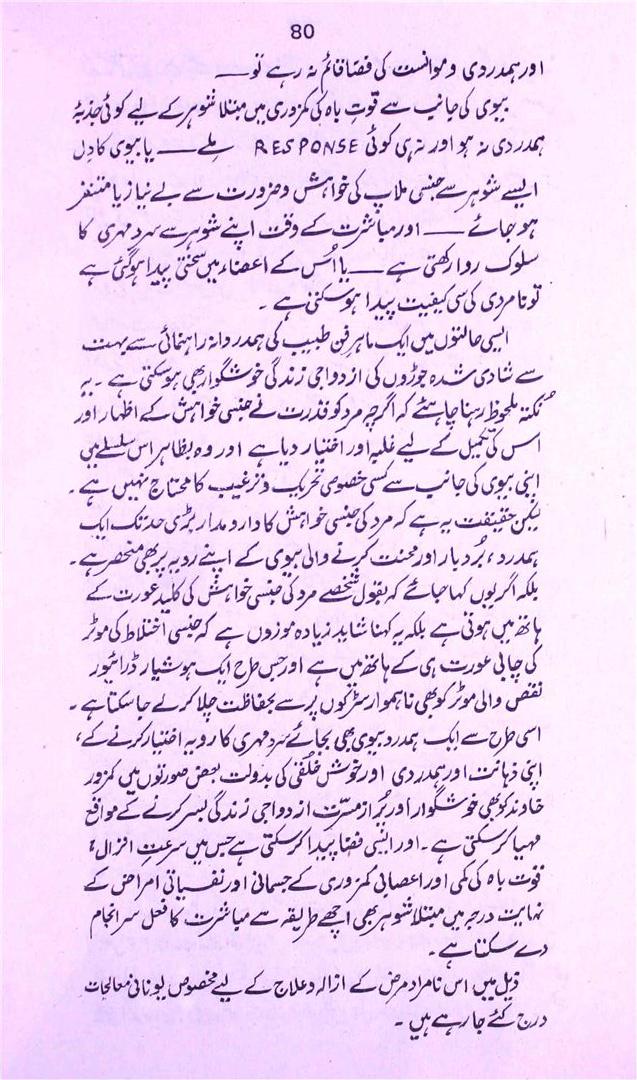 80
اور ہمدردی و موانست کی فضا قائم نہ رہے تو ——
بیوی کی جانب سے قوتِ باہ کی کمزوری میں مبتلا شوہر کے لیے کوئی جذبۂ
ہمدردی نہ ہو اور نہ ہی کوئی RESPONSE ملے —— یا بیوی کا دِل
ایسے شوہر سے جنسی ملاپ کی خواہش و ضرورت سے بے نیاز یا متنفر
ہو جائے —— اور مباشرت کے وقت اپنے شوہر سے سرد مہری کا
سلوک روا رکھتی ہے —— یا اُس کے اعضاء میں سختی پیدا ہو گئی ہے
تو نامردی کی سی کیفیت پیدا ہو سکتی ہے ۔
ایسی حالتوں میں ایک ماہرِ فن طبیب کی ہمدردانہ راہنمائی سے بہت
سے شادی شدہ جوڑوں کی ازدواجی زندگی خوشگوار بھی ہو سکتی ہے ۔ یہ
نُکتہ ملحوظ رہنا چاہئے کہ اگرچہ مرد کو قدرت نے جنسی خواہش کے اظہار اور
اس کی تکمیل کے لیے غلبہ اور اختیار دیا ہے اور وہ بظاہر اس سلسلے میں
اپنی بیوی کی جانب سے کسی خصوصی تحریک و ترغیب کا محتاج نہیں ہے ۔
لیکن حقیقت یہ ہے کہ مرد کی جنسی خواہش کا دارومدار بڑی حد تک ایک
ہمدرد ، بُردبار اور محبت کرنے والی بیوی کے اپنے رویہ پر بھی منحصر ہے ۔
بلکہ اگر یوں کہا جائے کہ بقول شخصے مرد کی جنسی خواہش کی کلید عورت کے
ہاتھ میں ہوتی ہے بلکہ یہ کہنا شاید زیادہ موزوں ہے کہ جنسی اختلاط کی موٹر
کی چابی عورت ہی کے ہاتھ میں ہے اور جس طرح ایک ہوشیار ڈرائیور
نقص والی موٹر کو بھی ناہموار سڑکوں پر سے بحفاظت چلا کر لے جا سکتا ہے ۔
اسی طرح سے ایک ہمدرد بیوی بھی بجائے سرد مہری کا رویہ اختیار کرنے کے ،
اپنی ذہانت اور ہمدردی اور خوش خُلقی کی بدولت بعض صورتوں میں کمزور
خاوند کو بھی خوشگوار اور پُر از مسرّت ازدواجی زندگی بسر کرنے کے مواقع
مہیا کر سکتی ہے ۔ اور ایسی فضا پیدا کر سکتی ہے جس میں سرعتِ انزال ،
قوت باہ کی کمی اور اعصابی کمزوری کے جسمانی اور نفسیاتی امراض کے
نہایت درجہ میں مبتلا شوہر بھی اچھے طریقہ سے مباشرت کا فعل سرانجام
دے سکتا ہے ۔
ذیل میں اس نامراد مرض کے ازالہ و علاج کے لیے مخصوص یونانی معالجات
درج کئے جا رہے ہیں ۔